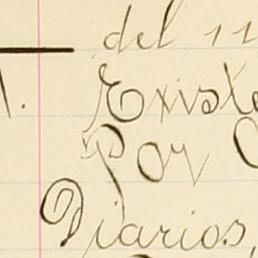 del 11
1. Existe
Por
Diarios,